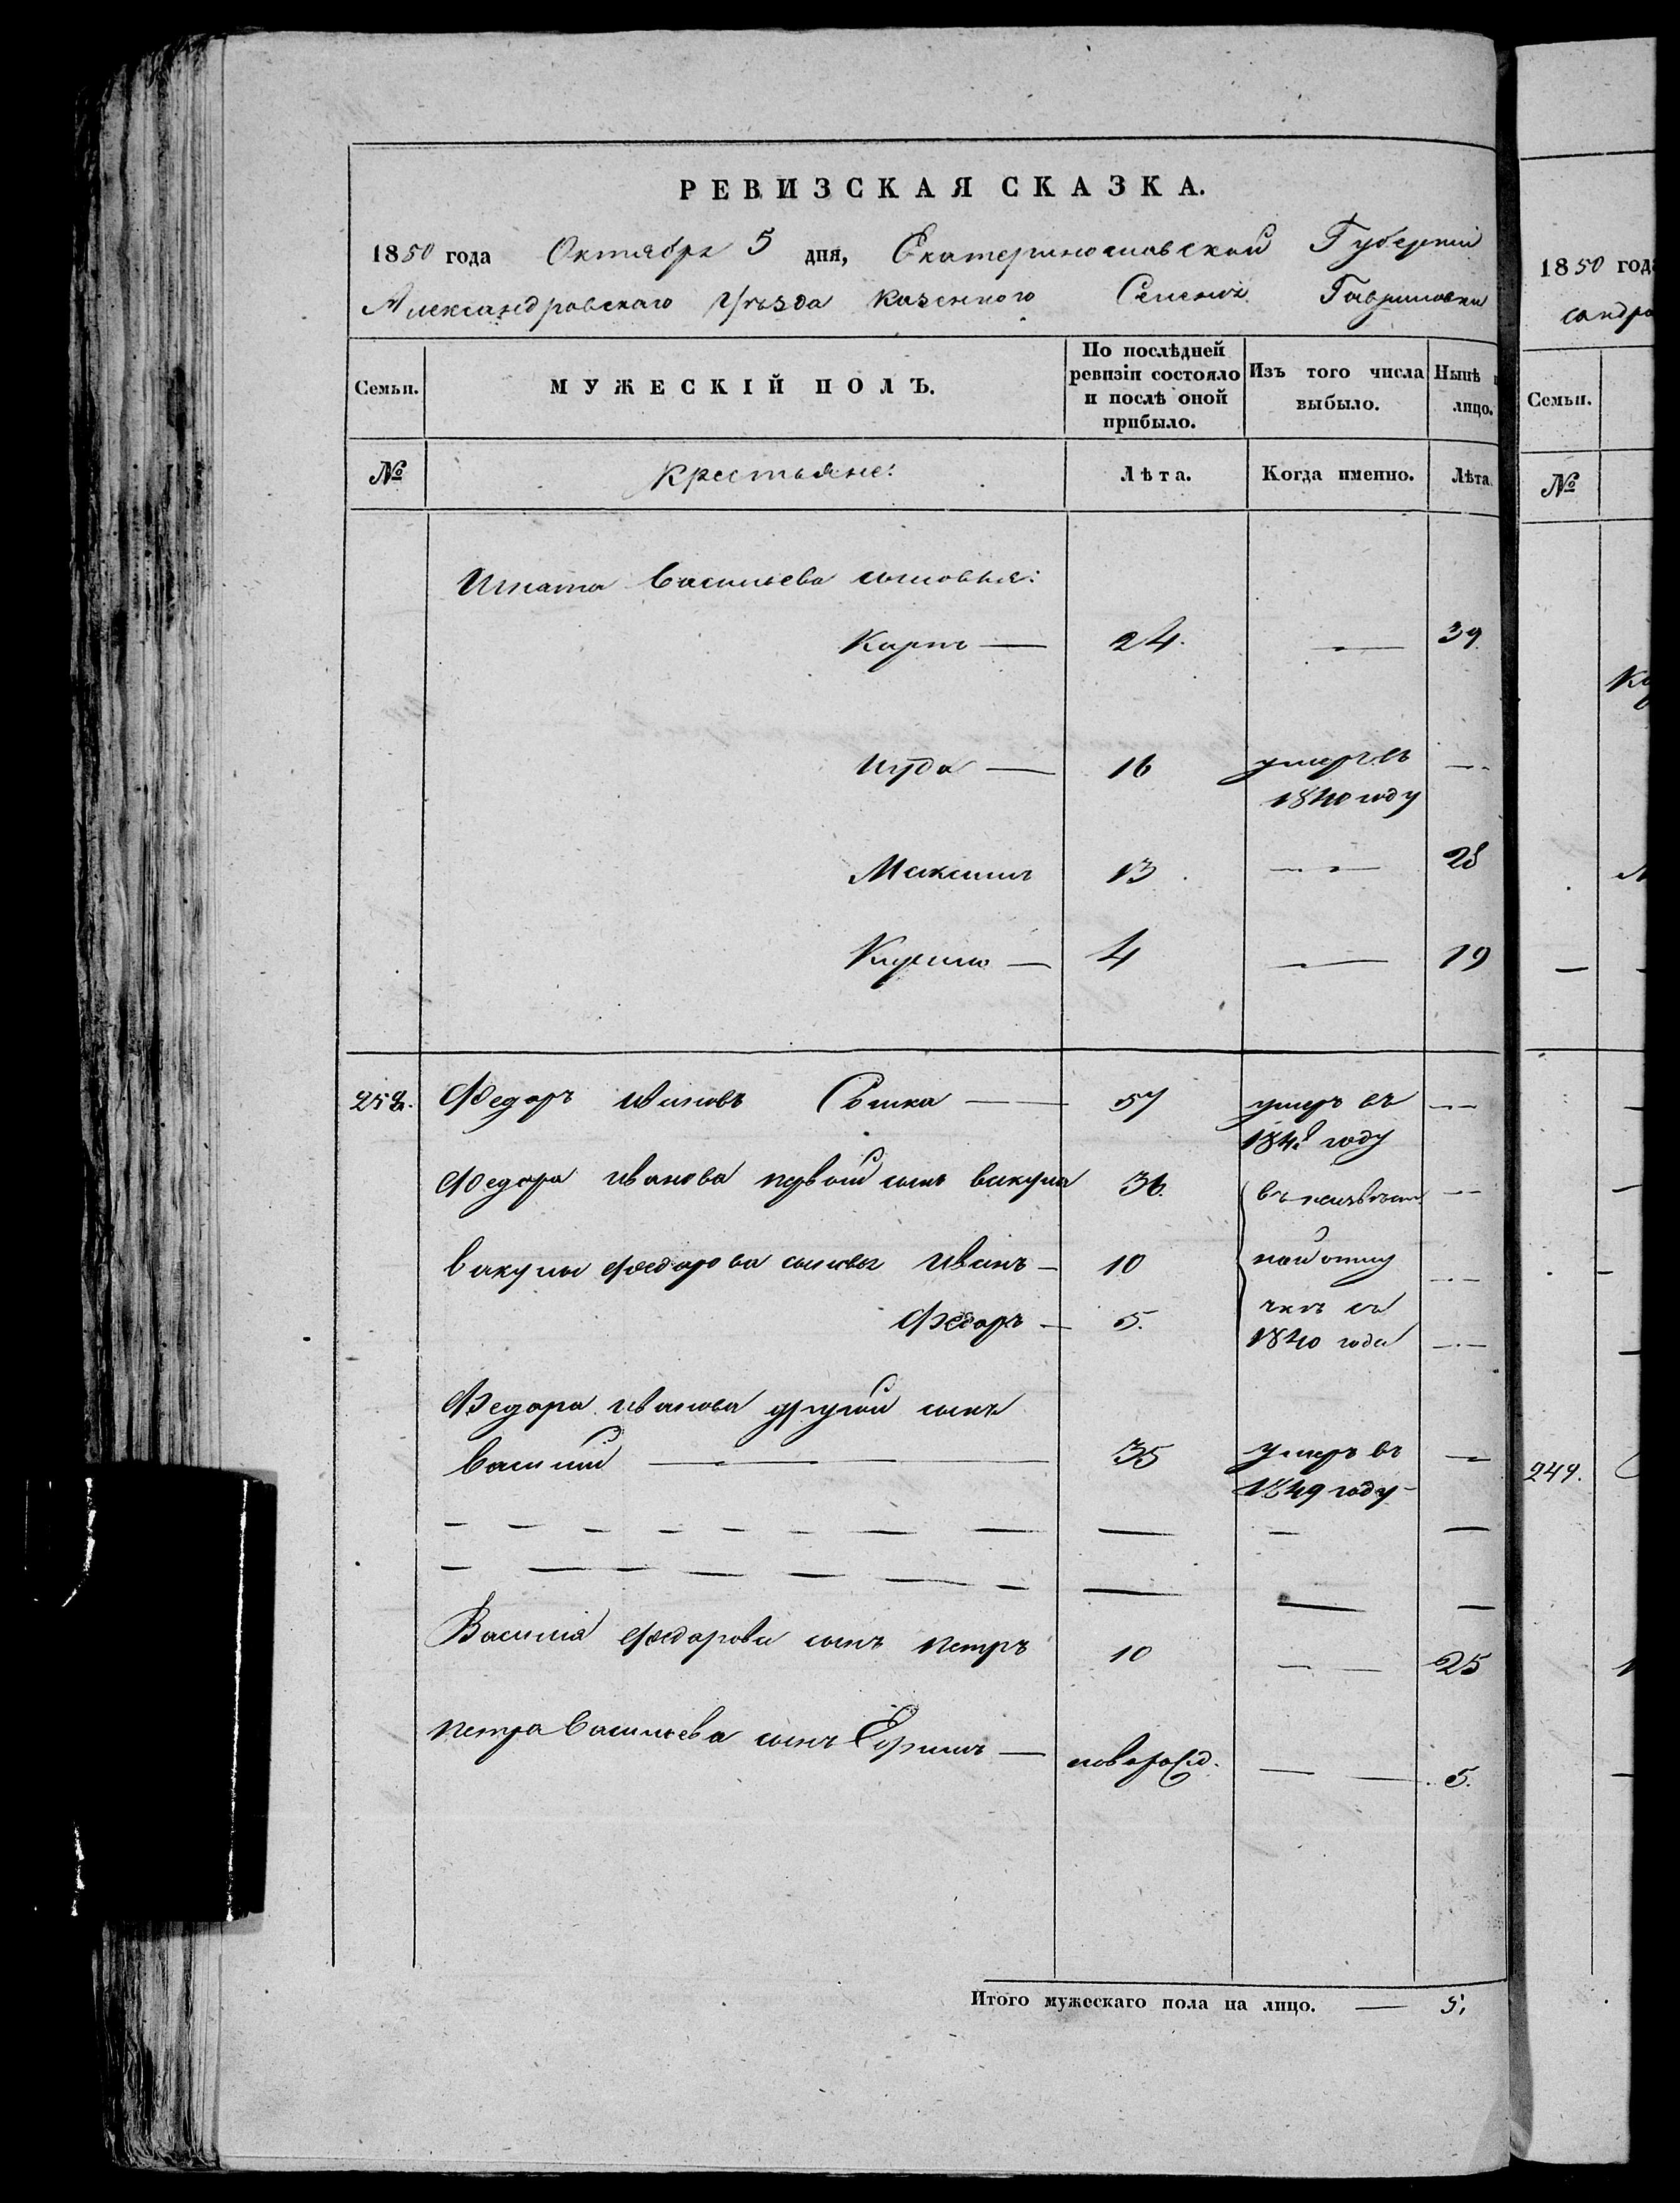 РЕВИЗСКАЯ СКАЗКА.
1850 года Октября 5 дня, Екатеринославской Губерніи
Александровскаго Уѣзда Казенного Селенія Гавриловки
Семьи.
МУЖЕСКІЙ ПОЛЪ.
По послѣдней ревизіи состояло и послѣ оной прибыло.
Изъ того числа выбыло.
Нынѣ лицо.
№
Крестьяне:
Лѣта.
Когда именно.
Лѣта.
Игната Васильева сыновья:
Карпъ — 24. — 39.
Иуда — 16 умеръ въ —
1840 году
Максимъ 13. — 28
Кузьма — 4 — 19
252. Федоръ Ивановъ — 57 умеръ въ —
году
Федора Иванова первый сынъ Вакула 36. въ неизвѣст —
Вакулы Федорова сыновья Иванъ — 10 ной отлу —
Федоръ — 5. чкѣ съ
1840 года —
Федора Иванова другой сынъ
Василій — 35 умеръ въ —
1849 году
Василія Федорова сынъ Петръ 10 — 25
Петра Васильева сынъ Ефимъ — новорожд. — 5.
Итого мужескаго пола на лицо. — 5.
1850 года
сандро
Семьи.
№
249.